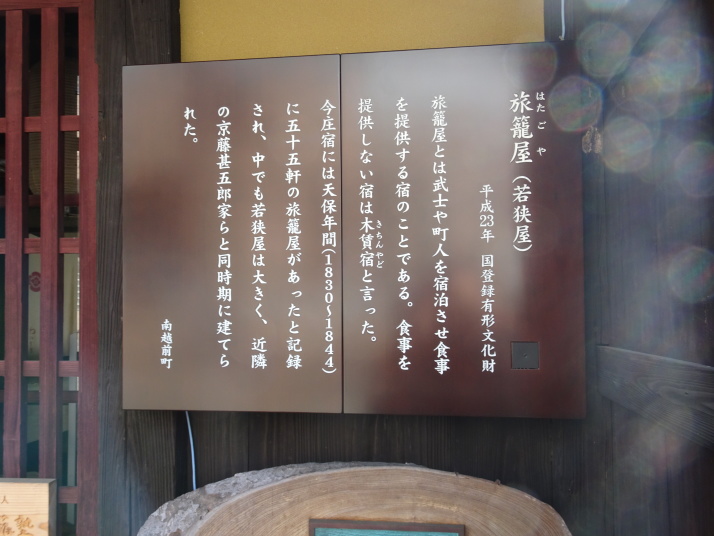 はたごや
旅籠屋（若狭屋）
平成23年 国登録有形文化財
旅籠屋とは武士や町人を宿泊させ食事
を提供する宿のことである。食事を
提供しない宿は木賃宿と言った。
きちんやど
今庄宿には天保年間(1830～1844)
に五十五軒の旅籠屋があったと記録
され、中でも若狭屋は大きく、近隣
の京藤甚五郎家らと同時期に建てら
れた。
南越前町
人